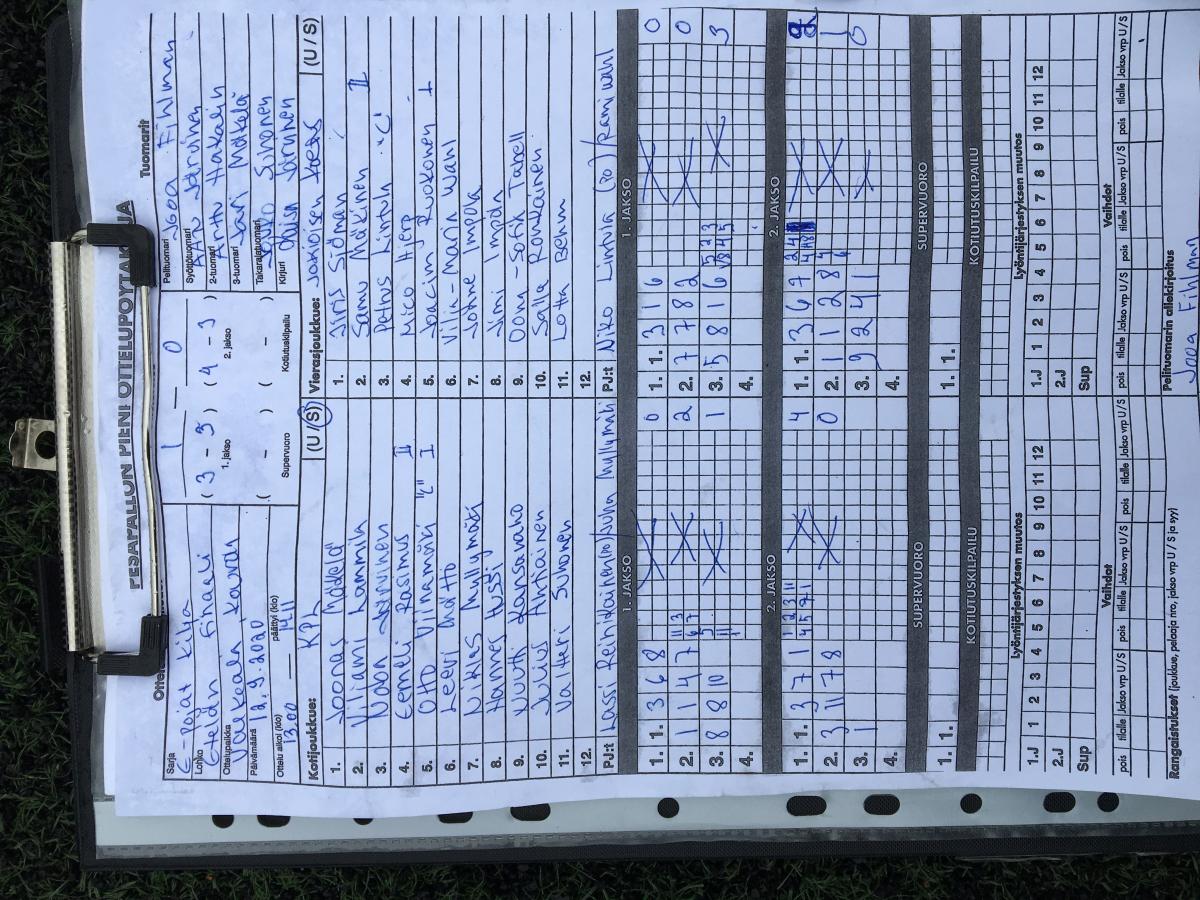 PESÄPALLON PIENI OTTELUPÖYTÄKIRJA
Sarja
E-Pojat Kilpa
Lohko
Etelän Finaali
Ottelupaikka
Valkeala Kaivan
Päivämäärä
12.9.2020
Ottelu alkoi (klo) päättyi (klo)
13.00 14.11
1 - 0
( 3 - 3 ) ( 4 - 3 )
1. jakso 2. jakso
( - ) ( - )
Supervuoro Kotiutuskilpailu
Tuomarit
Pelituomari Jooa Fihlman
Syöttötuomari Järvinen
2-tuomari Arttu Hakalin
3-tuomari Sari Mäkelä
Takarajatuomari Sihvonen
Kirjuri Järvinen
Kotijoukkue: KPL (U / S)
1. Joonas Mödell
2. Viljami Lammila
3. Noan Järvinen
4. Eemeli Rasimus II
5. Otto Villamäki "C" I
6. Leevi Mutto
7. Niklas Myllymäki
8. Hannes Hussi
9. Vuutti Kansavuho
10. Julius Ahtiainen
11. Valtteri Suhonen
12.
PJ:t Lassi
Vierasjoukkue: (U / S)
1. Siris Sjöman
2. Samu Mäkinen II
3. Petrus Lintula "C"
4. Mico Hjerp
5. Joacim Ruokonen I
6. Vilja-Marin Wahl
7. Jonne Impola
8. Jimi Impola
9. Oona-Sofia Taxell
10. Salla Ronkainen
11. Lotta Behm
12.
PJ:t Niko Lintula / Rami Wahl
1. JAKSO 1. JAKSO
1. 1. 3 6 8 0
2. 1 1 4 7 2
3. 8 8 10 1
4.
1. 1. 3 1 6 0
2. 7 7 8 2 0
3. 5 8 1 6 3
4.
2. JAKSO 2. JAKSO
1. 1. 3 7 1 4
2. 3 11 7 8 0
3. 1
4.
1. 1. 3 6 7
2. 1 1 2 8 1
3. 9 2 4 1 0
4.
SUPERVUORO SUPERVUORO
1. 1. 1. 1.
KOTIUTUSKILPAILU KOTIUTUSKILPAILU
Lyöntijärjestyksen muutos Lyöntijärjestyksen muutos
1.J 1 2 3 4 5 6 7 8 9 10 11 12
2.J
Sup
1.J 1 2 3 4 5 6 7 8 9 10 11 12
2.J
Sup
Vaihdot Vaihdot
pois tilalle Jakso vrp U / S pois tilalle Jakso vrp U / S pois tilalle Jakso vrp U / S
pois tilalle Jakso vrp U / S pois tilalle Jakso vrp U / S pois tilalle Jakso vrp U / S
Rangaistukset (joukkue, pelaaja nro, jakso vrp U / S ja syy)
Pelituomarin allekirjoitus
Jooa Fihlman